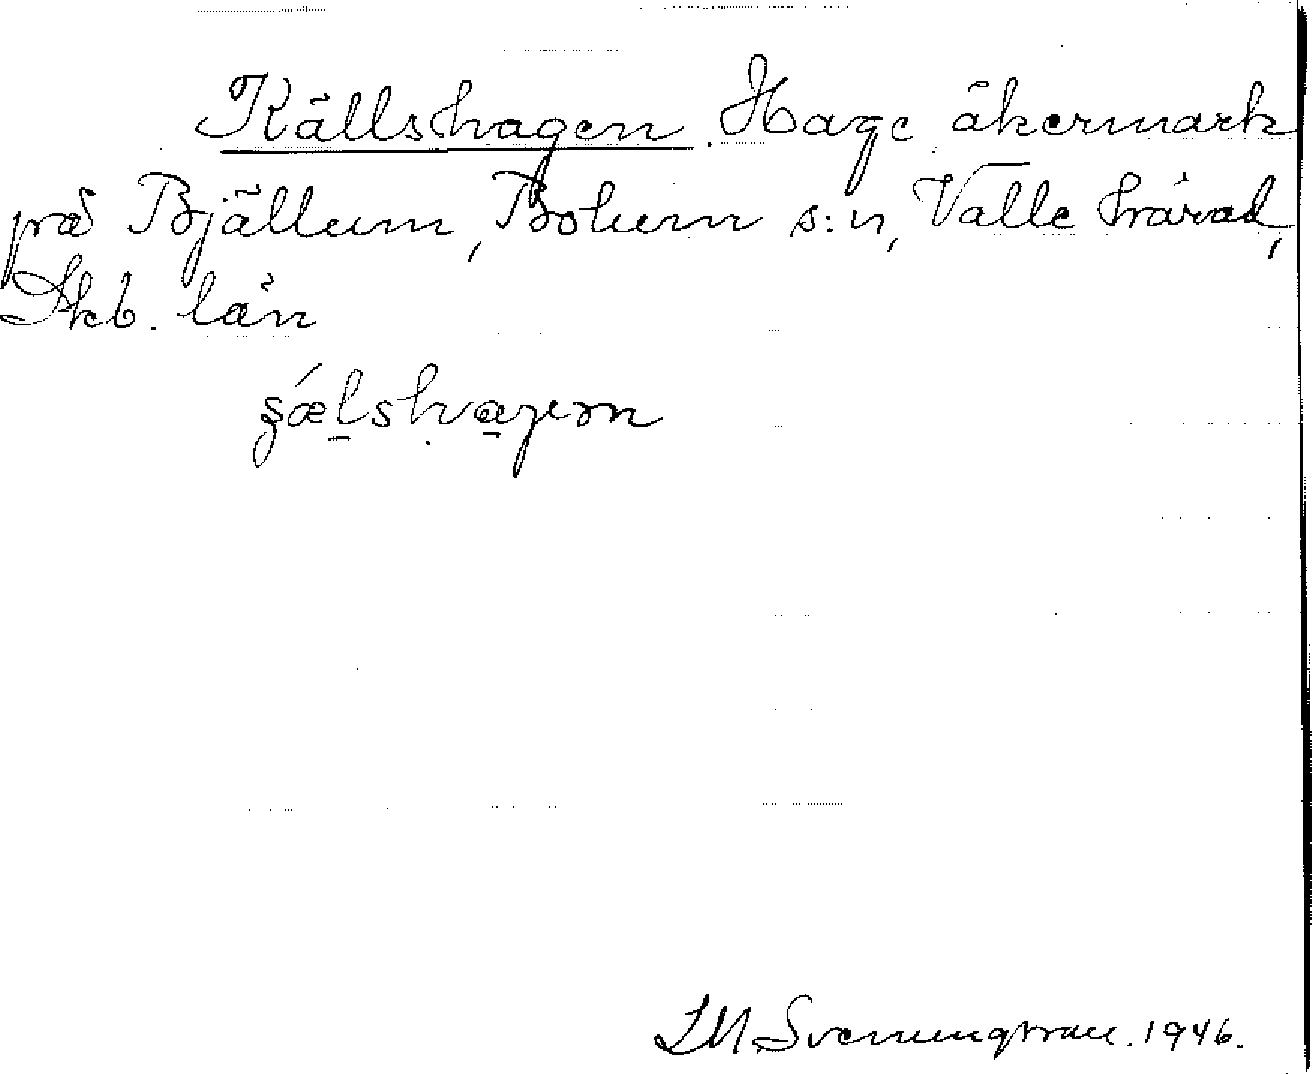 Källshagen. Hage åkermark
på Bjällum, Bolum s:n, Valle härad,
Skb. län
I.M. Svenungsson. 1946.